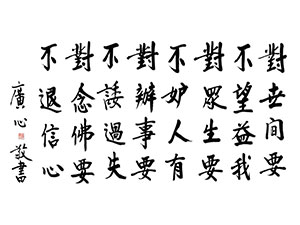 對世間要
不望益我
對眾生要
不妒人有
對辦事要
不諉過失
對念佛要
不退信心
廣心敬書